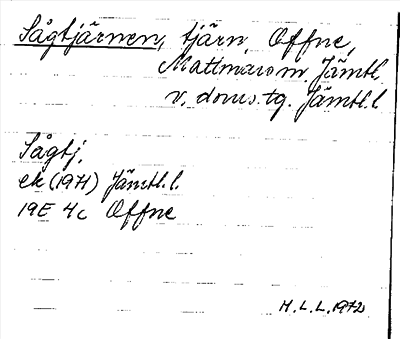 Sågtjärnen, tjärn, Offne,
Mattmar sn. Jämtl.
v. doms. tg. Jämtl. l
Sågtj.
ek (1971) Jämtl. l.
19E 4c Offne
H. L. L. 1972